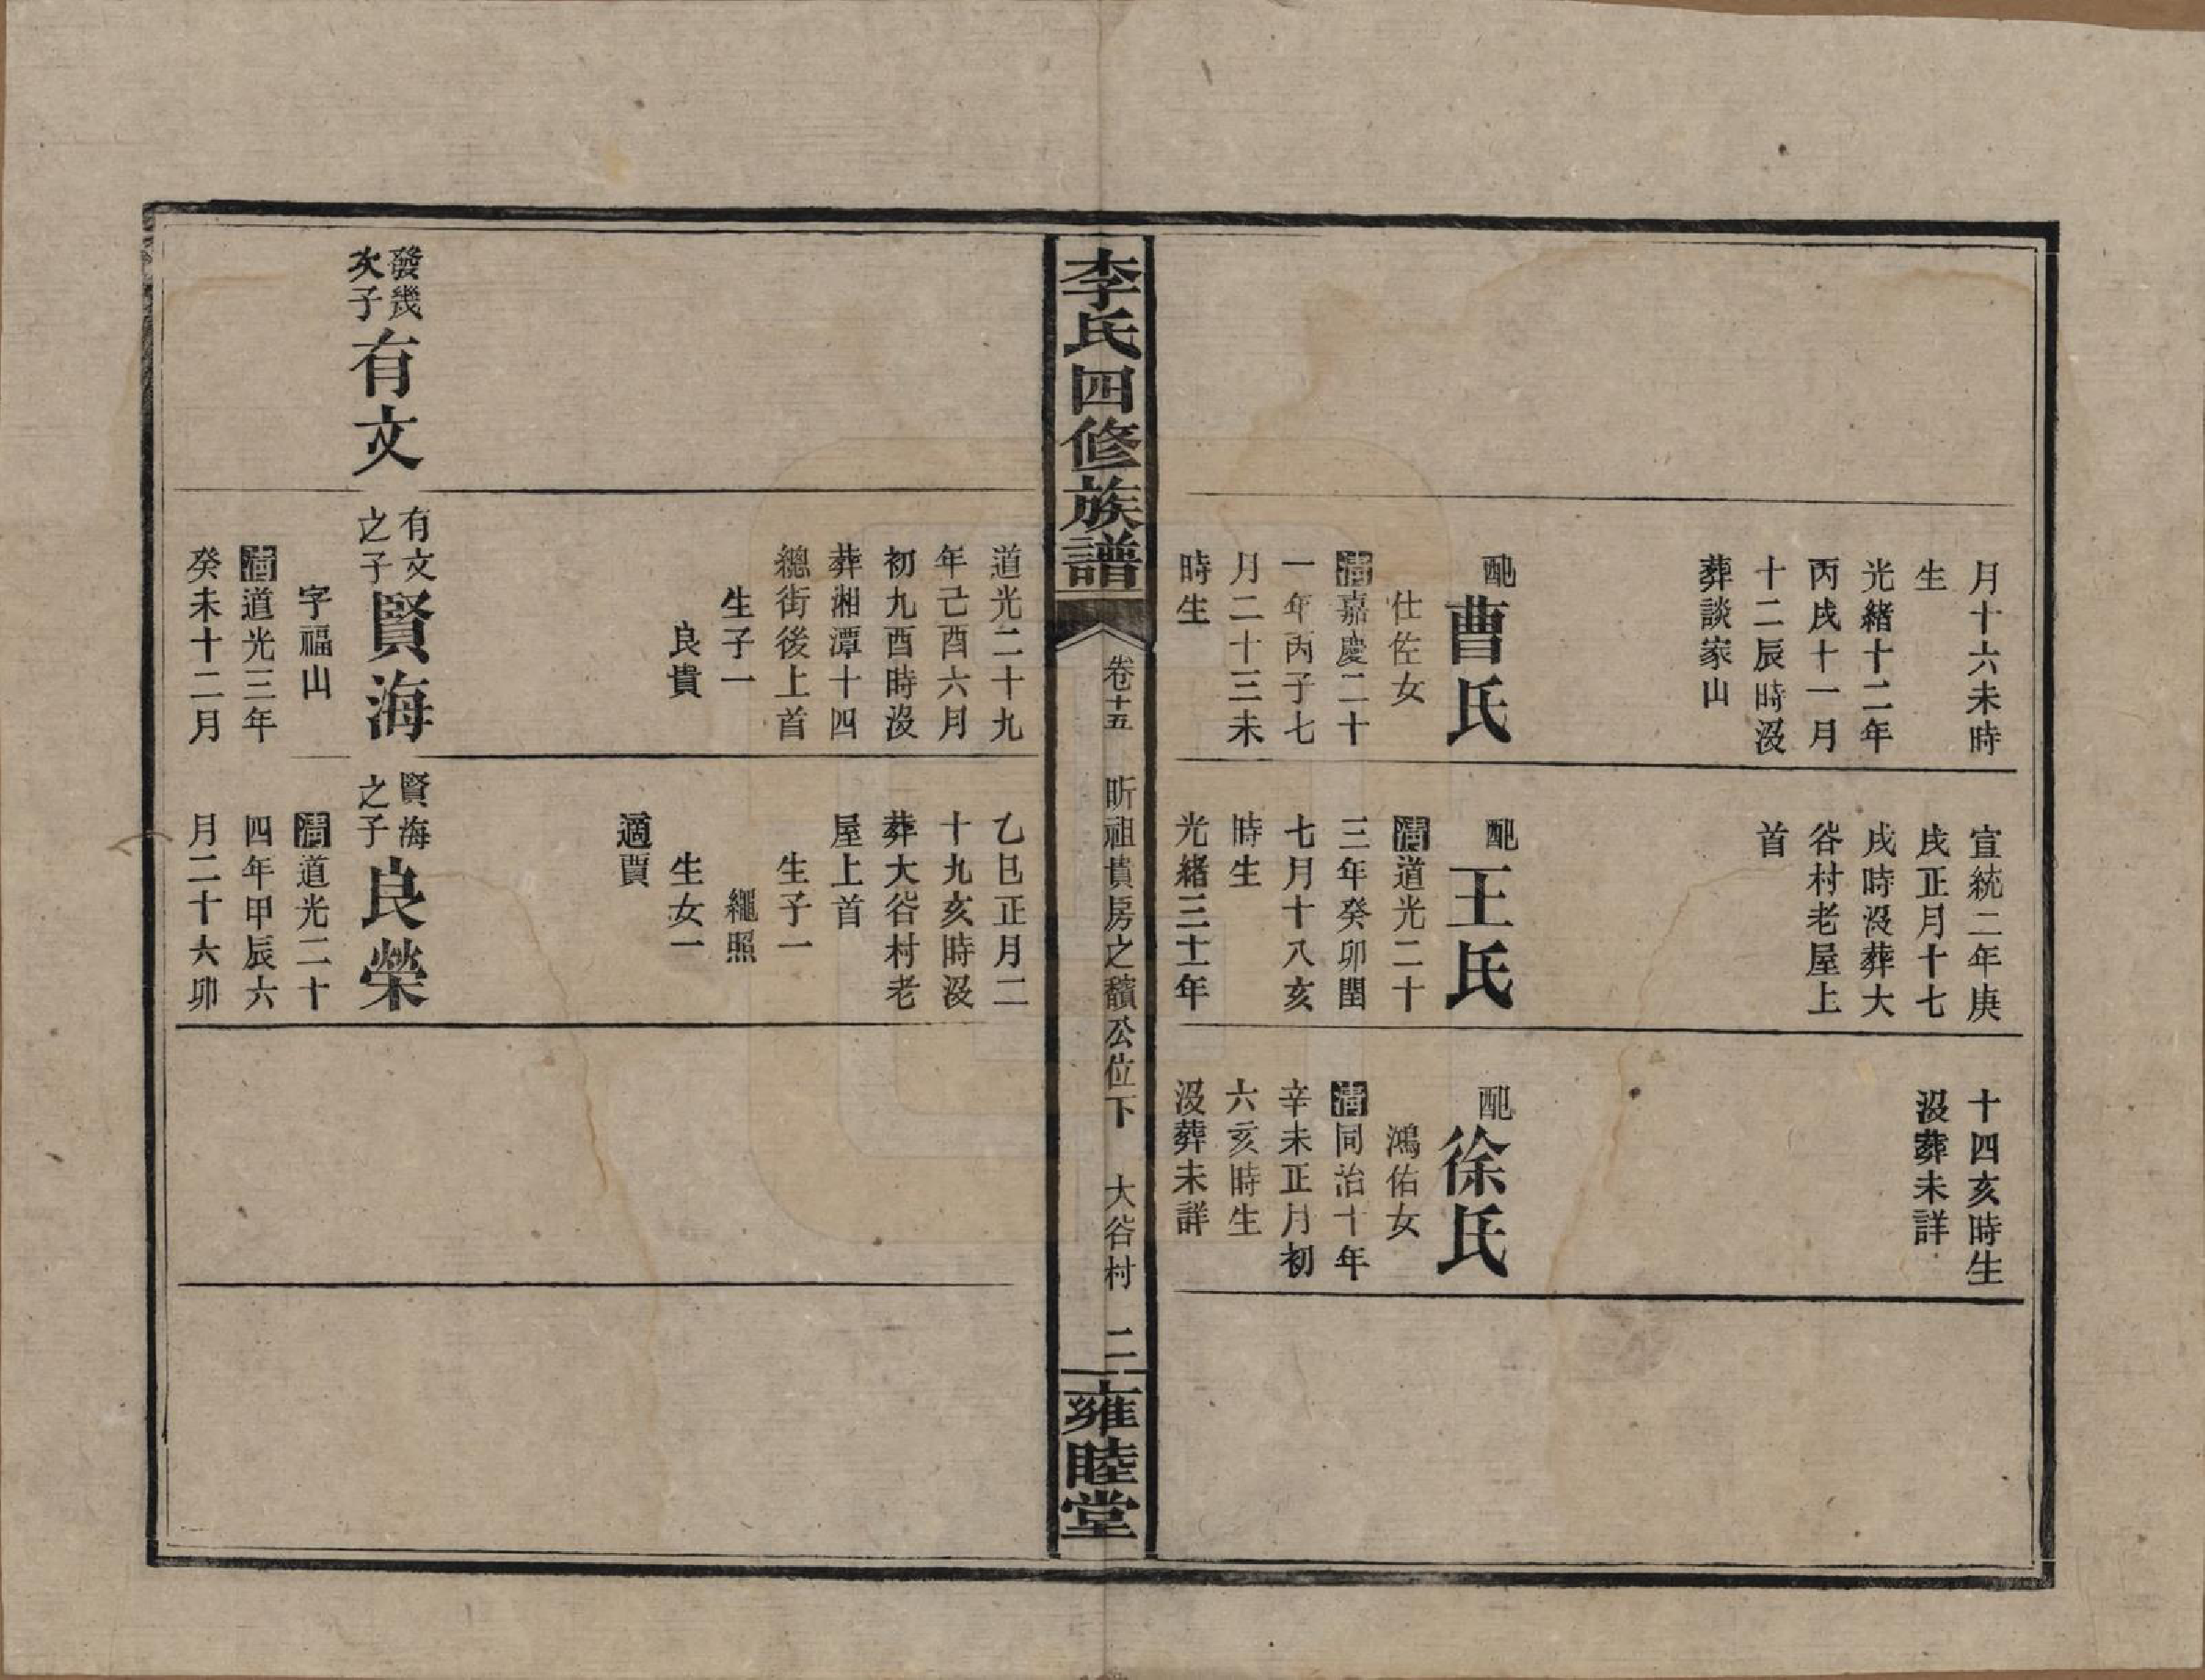 月十六未時
生
光緒十二年
丙戌十一月
十二辰時沒
葬談家山
配
曹氏
仕佐女
清嘉慶二十
一年丙子七
月二十三未
時生
宣統二年庚
戌正月十七
戌時沒葬大
谷村老屋上
首
配
王氏
清道光二十
三年癸卯閏
七月十八亥
時生
光緒三十一年
十四亥時生
沒葬未詳
配
徐氏
鴻佑女
清同治十年
辛未正月初
六亥時生
沒葬未詳
李氏四修族譜
卷十五
昕祖貴房之積公位下
大谷村
二
雍睦堂
發幾
次子
有文
道光二十九
年己酉六月
初九酉時沒
葬湘潭十四
總街後上首
生子一
良貴
有文
之子
賢海
字福山
清道光三年
癸未十二月
乙巳正月二
十九亥時沒
葬大谷村老
屋上首
生子一
繩照
生女一
適賈
賢海
之子
良榮
清道光二十
四年甲辰六
月二十六卯